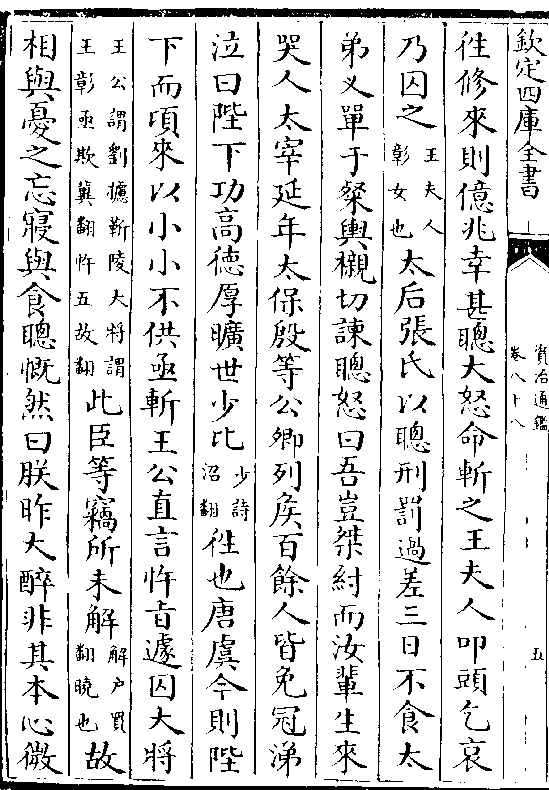 欽定四庫全書
資治通鑑
卷八十八
五
徃修來則億兆幸甚聰大怒命斬之王夫人叩頭乞哀
乃囚之王夫人彰女也太后張氏以聰刑罰過差三日不食太
弟乂單于粲輿櫬切諫聰怒曰吾豈桀紂而汝輩生來
哭人太宰延年太保殷等公卿列矦百餘人皆免冠涕
泣曰陛下功高德厚曠世少比少詩沼翻徃也唐虞今則陛
下而頃來以小小不供亟斬王公直言忤旨遽囚大將
王公謂劉攄靳陵大將謂王彰亟欺冀翻忤五故翻此臣等竊所未解解户買翻曉也故
相與憂之忘寢與食聰慨然曰朕昨大醉非其本心微